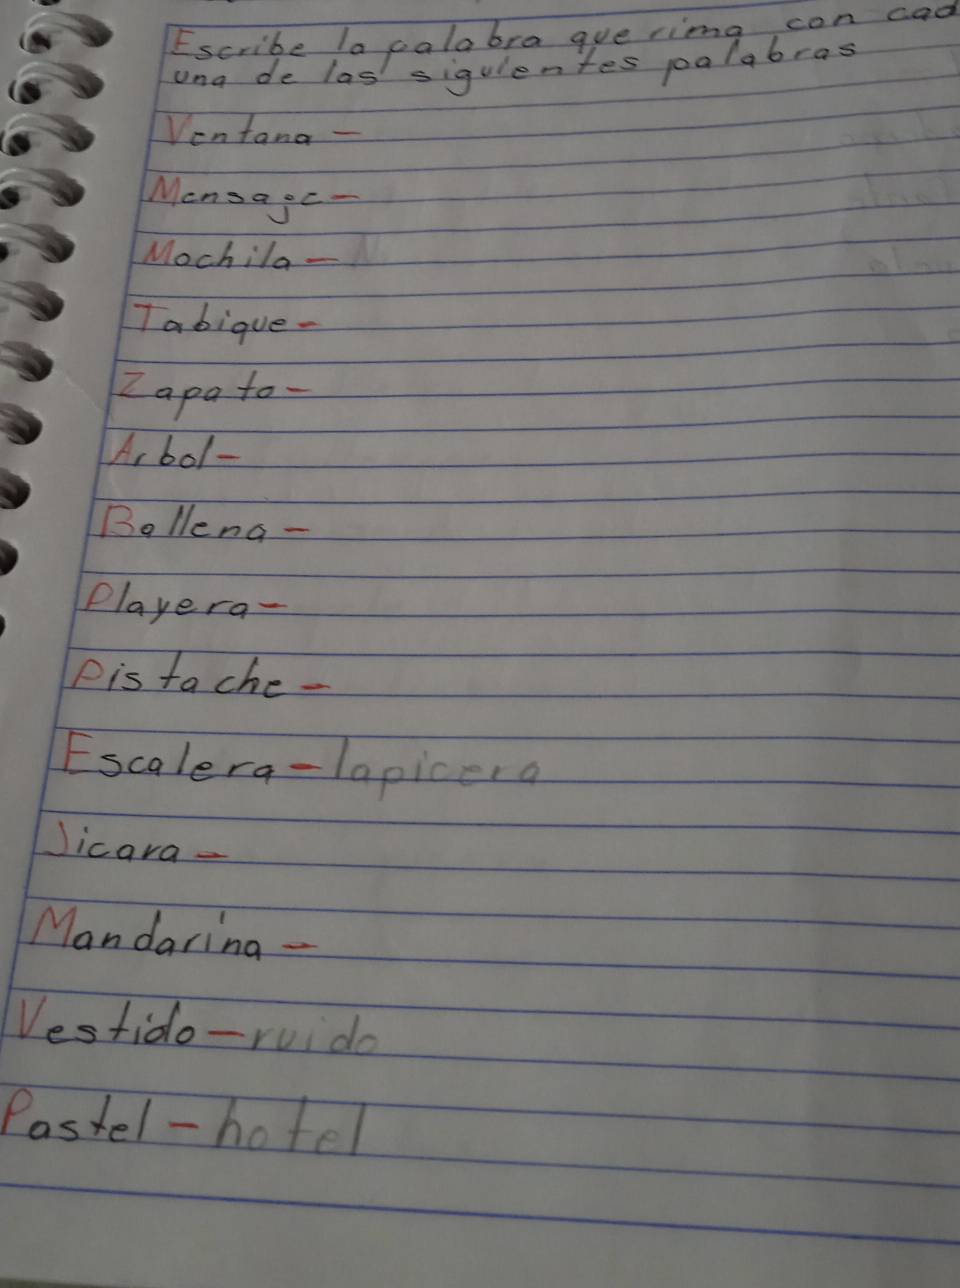 Escribe la palabra que rima con cad
una de las siguientes palabras
Ventana -
Mensaje -
Mochila -
Tabique -
Zapato -
Arbol -
Ballena -
Playera -
Pistache -
Escalera - lapicera
Jicara -
Mandarina -
Vestido - ruido
Pastel - hotel